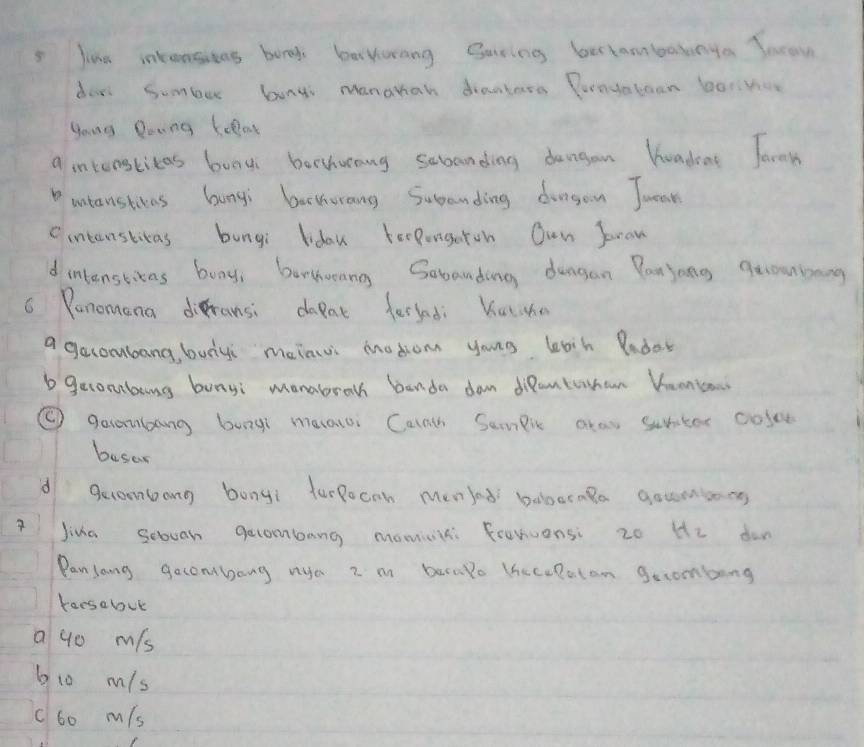 5 Jika intensitas bunyi berkurang seiring bertambahnya Jarak
dari sumber bunyi manakah diantara Pernyataan berikut
yang Paling tepat
a intenstitas bunyi berkurang sebanding dengan kuadrat Jarak
b intenstitas bungi berkurang Sebanding dengan Jarak
c intenstitas bungi tidak terpengaruh Oleh Jarak
d intenstitas bunyi berkurang Sebanding dengan Panjang gelombang
6 Penomena difransi dapat terjadi ketika
a gelombang bunyi melalui medium yang lebih Padat
b gelombang bunyi menabrak benda dan dipantulkan kembali
c gelombang bungi melalui Celah Sempit atau sekitar objek
besar
d gelombang bunyi terpecah menjadi beberapa gelombang
7 Jika sebuah gelombang memiliki Frekuensi 20 Hz dan
Panjang gelombang nya 2 m berapa kecepatan gelombang
tersebut
a 40 m/s
b 10 m/s
c 60 m/s